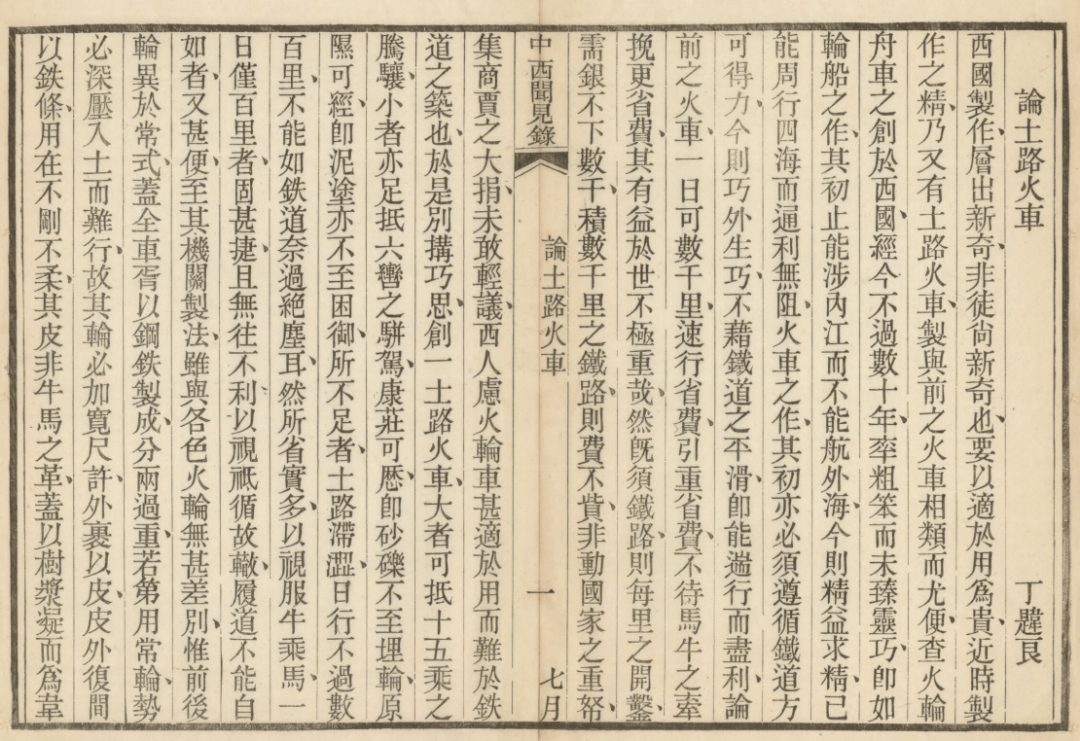 論土路火車 丁韙良
西國製作、層出新奇、非徒尙新奇也、要以適於用爲貴、近時製
作之精、乃又有土路火車、製與前之火車相類而尤便、查火輪
舟車之創於西國、經今不過數十年、率粗笨而未臻靈巧、卽如
輪船之作、其初止能涉內江而不能航外海、今則精益求精、已
能周行四海而逼利無阻、火車之作、其初亦必須遵循鐵道方
可得力、今則巧外生巧、不藉鐵道之平滑、卽能遄行而盡利、論
前之火車、一日可數千里、速行省費、引重省費、不待馬牛之牽
挽更省費、其有益於世不極重哉、然旣須鐵路、則每里之開鑿、
需銀不下數千、積數千里之鐵路、則費不貲、非動國家之重帑、
中西聞見錄 論土路火車 一 七月
集商賈之大捐、未敢輕議、西人慮火輪車甚適於用而難於鉄
道之築也、於是別搆巧思、創一土路火車、大者可抵十五乘之
騰驤、小者亦足抵六轡之駢駕、康莊可歷、卽砂礫不至埋輪、原
隰可經、卽泥塗亦不至困御、所不足者、土路滯澀、日行不過數
百里、不能如鉄道奈過絕塵耳、然所省實多、以視服牛乘馬、一
日僅百里者、固甚捷、且無往不利、以視祇循故轍、履道不能自
如者、又甚便、至其機關製法、雖與各色火輪無甚差別、惟前後
輪異於常式、蓋全車胥以鋼鉄製成、分兩過重、若第用常輪、勢
必深壓入土而難行、故其輪必加寬尺許、外裹以皮、皮外復間
以鉄條、用在不剛不柔、其皮非牛馬之革、蓋以樹漿凝而爲韋